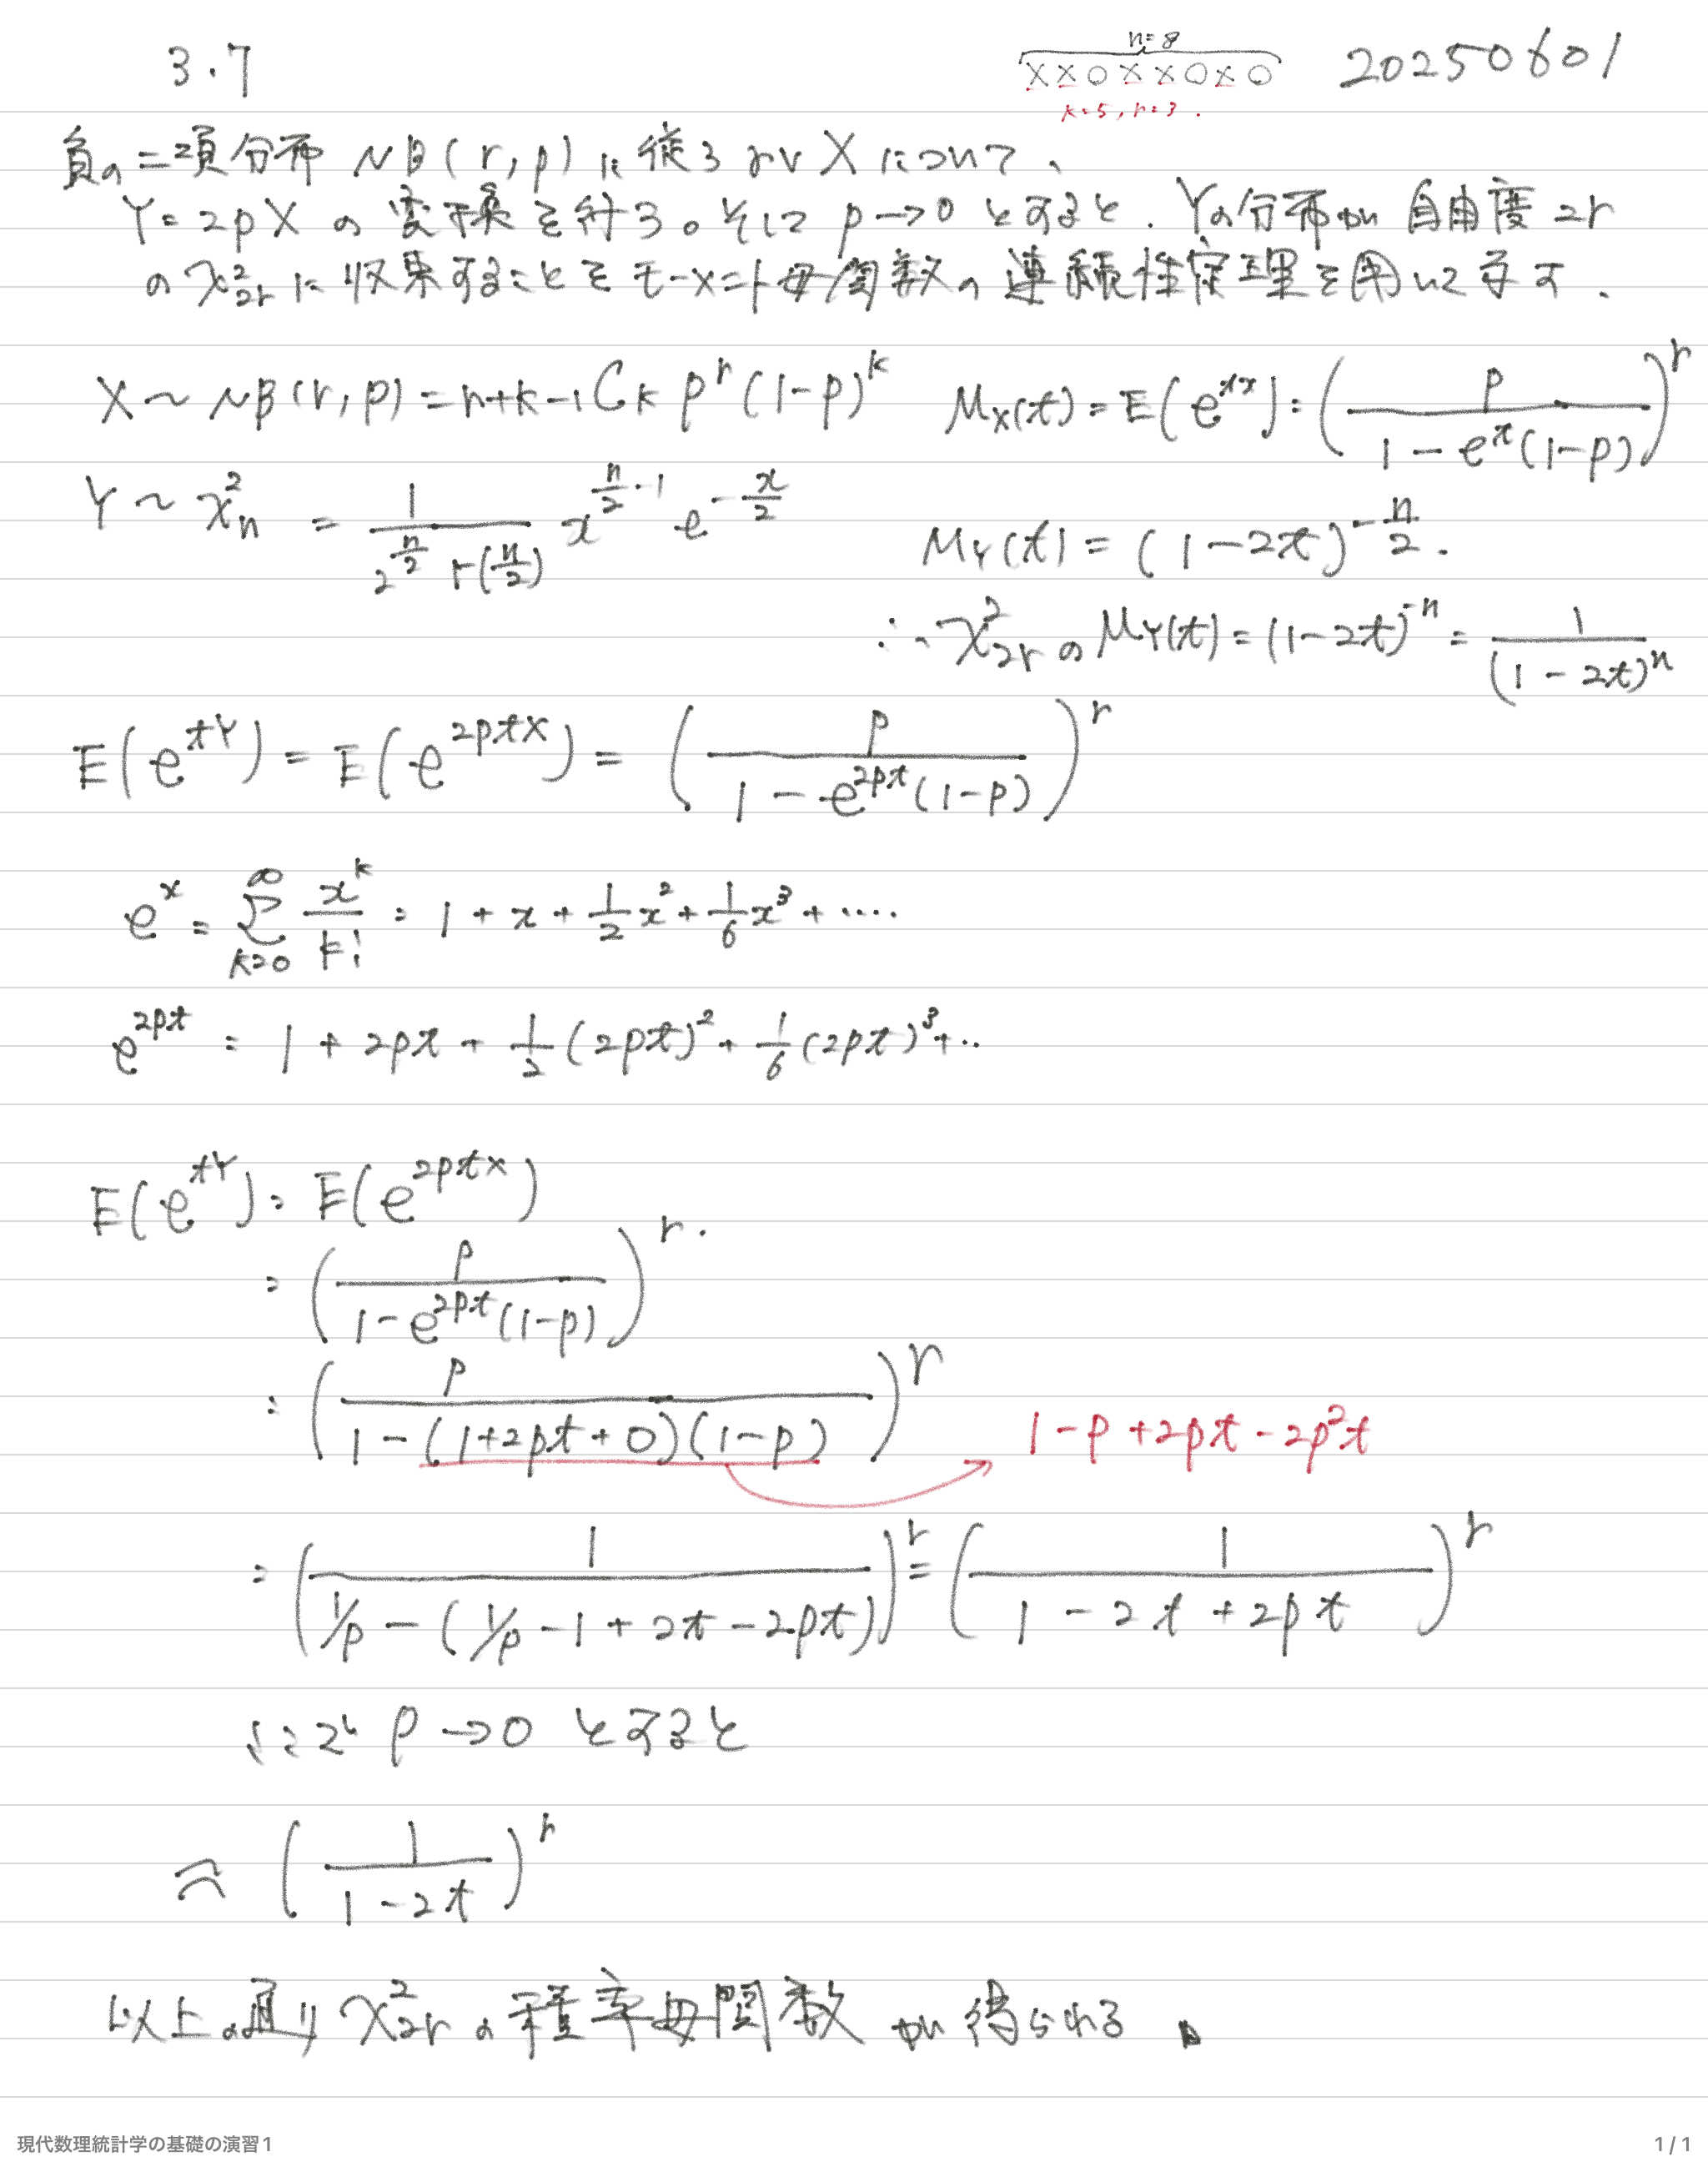 3.7
n=8
××○××○×○
k=5, r=3.
20250601
負の二項分布 NB(r,p)に従う rv Xについて、
Y=2pXの変換を行う。そして p→0とすると. Yの分布が自由度2r
のχ²₂ᵣに収束することをモーメント母関数の連続性定理を用いて示す.
X ~ NB(r,p) = r+k-1Ck p^r (1-p)^k
Mx(t) = E(e^{tx}) = (p / (1 - e^t(1-p)))^r
Y ~ χ²n = 1 / (2^{n/2} Γ(n/2)) x^{n/2 - 1} e^{-x/2}
MY(t) = (1-2t)^{-n/2}.
∴ χ²₂ᵣの MY(t) = (1-2t)^{-n} = 1 / (1-2t)^n
E(e^{tY}) = E(e^{2ptX}) = (p / (1 - e^{2pt}(1-p)))^r
e^x = Σ_{k=0}^{∞} x^k / k! = 1 + x + 1/2 x² + 1/6 x³ + ....
e^{2pt} = 1 + 2pt + 1/2 (2pt)² + 1/6 (2pt)³ + ..
E(e^{tY}) = E(e^{2ptx})
= (p / (1 - e^{2pt}(1-p)))^r.
= (p / (1 - (1+2pt+0)(1-p)))^r
1-p+2pt-2p²t
= (1 / (1/p - (1/p - 1 + 2t - 2pt)))^r = (1 / (1 - 2t + 2pt))^r
ここで p→0 とすると
≈ (1 / (1-2t))^r
以上の通り χ²₂ᵣの積率母関数が得られる
現代数理統計学の基礎の演習1
1 / 1